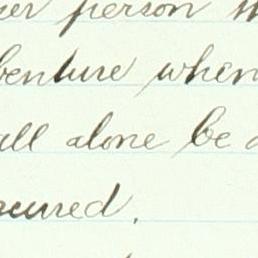 person
benture when
all alone be
cured.